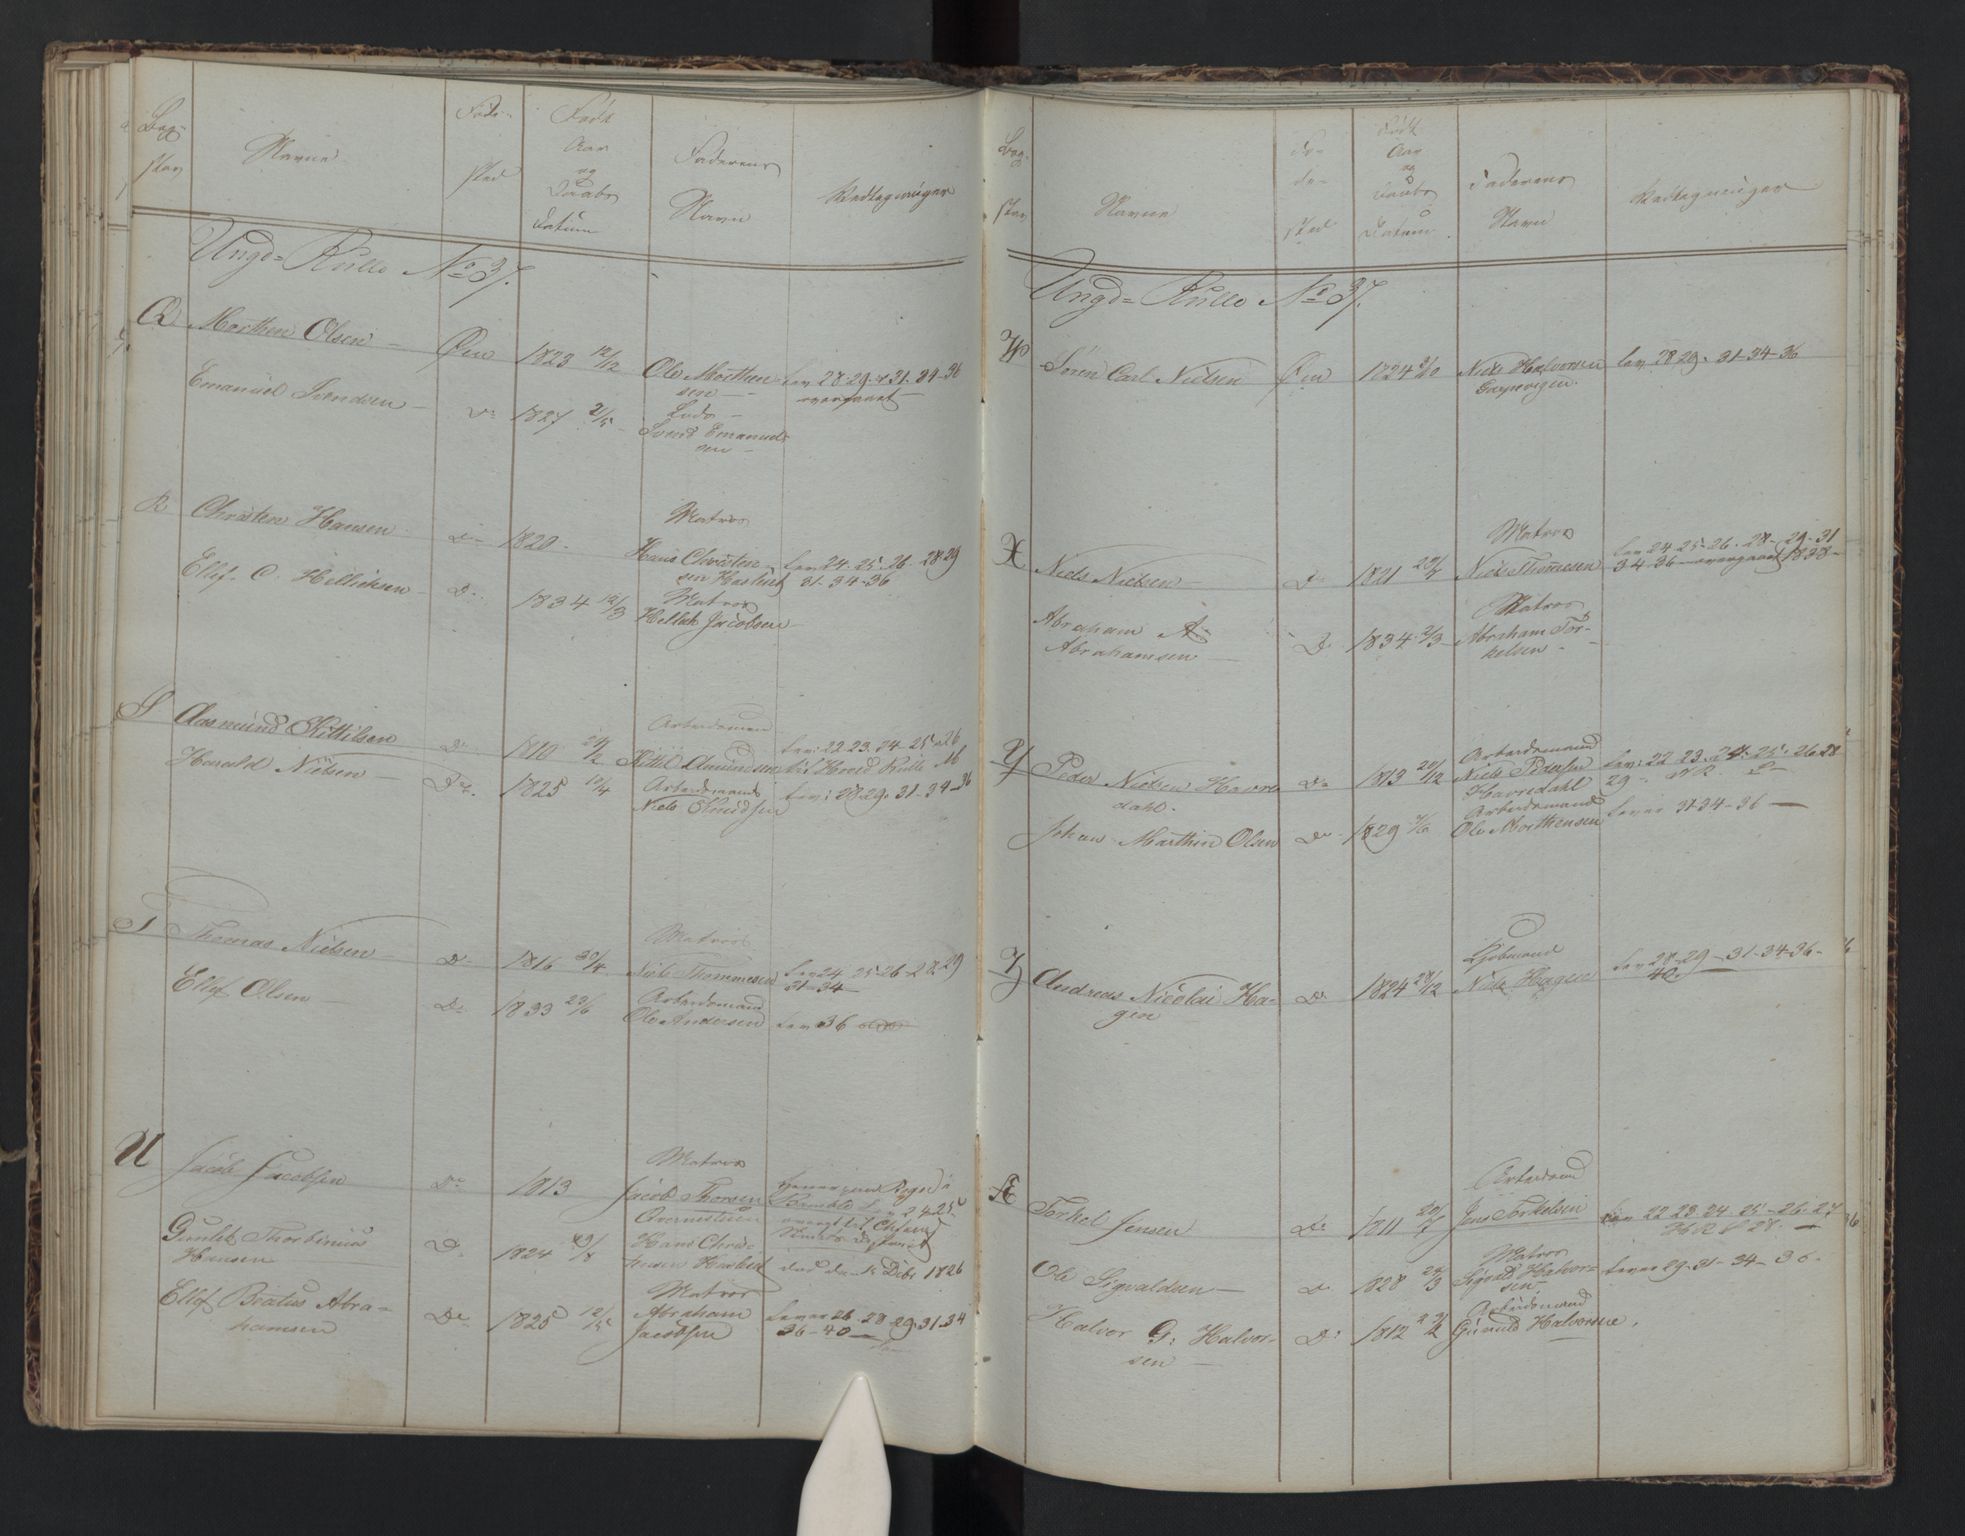 Bog-
stav
Navne
Føde-
sted
Født
Aar
og
Daabs
Datum
Faderens
Navn
Anteegninger
Ungd= Rulle No 37.
Q Morthen Olsen - Øen 1823 12/12 Ole Morthen-
sen -
lev 28. 29. 31. 34-36
overgaaet
Emanuel Svendsen - Do 1827 2/5 - Lods -
Svend Emanuel-
sen -
R Christen Hansen Do 1820. Matros
Hans Christen-
sen
lev 24. 25. 26. 28 29
31-34-36
Ellef C. Helliksen - Do 1834 12/3 Matros
Hellek Jacobsen -
S Aasmund Kittilsen Do 1810 Arbeidsmand
Kittil Amundsen
lev: 22. 23. 24-25-26
til Hoved Rulle
Harald Nielsen - Do 1825 10/4 Arbeidsmand
Niels Knudsen
lev: 28-29. 31-34-36
T Thomas Nielsen - Do 1816 30/4 Matros
Niels Thommesen
lev 24 25-26-28. 29
31-34
Ellef Olsen - Do 1833 23/6 Arbeidsmand
Ole Andersen
lev 36
U Jacob Jacobsen Do 1813 Matros
Jacob Thorsen
Bamble lev 24-25
Gunlek Thorbinius
Hansen
Do 1824 Hans Chris-
tensen
død den Debr 1826
Ellef Beatus Abra-
hamsen
Do 1825 12/5 Matros
Abraham
Jacobsen
lever 26-28-29. 31-34
36-40
Bog-
stav
Navne
Fø-
de-
sted
Født
Aar
og
Daabs
Datum
Faderens
Navn
Anteegninger
Ungd= Rulle No 37.
W Søren Carl Nielsen Øen 1824 Niels Halvorsen
lev 28 29. 31-34-36
X Niels Nielsen - Do 1821 Matros
Niels Thomesen
lev 24-25-26. 28. 29-31
34-36 - overgaaet 1838 -
Abraham A-
Abrahamsen -
Do 1834 2/3 Matros
Abraham Tor-
kelsen -
Y Peder Nielsen Havre
dahl.
Do 1813 20/12 Arbeidsmand
Niels Pedersen
Havredahl
lev: 22. 23. 24-25-26. 28
29 -
Johan Marthin Olsen Do 1829 Arbeidsmand
Ole Morthensen
lever 31-34-36 -
Z Andreas Nicolai Ha-
gen
Do 1824 28/12 Kjøbmand
Niels Hagen
lev 28-29-31-34-36-
40-
Æ Torkel Jensen Do 1811 20/7 Arbeidsmd
Jens Torkelsen
lev 22 23-24 25-26-27
Ole Sigvaldsen - Do 1828 24/3 Matros
Sigvald Halvor-
sen
lever 29-31-34-36-
Halvor G: Halvor-
sen -
Do 1812 Arbeidsmand
Gunuld Halvorsen